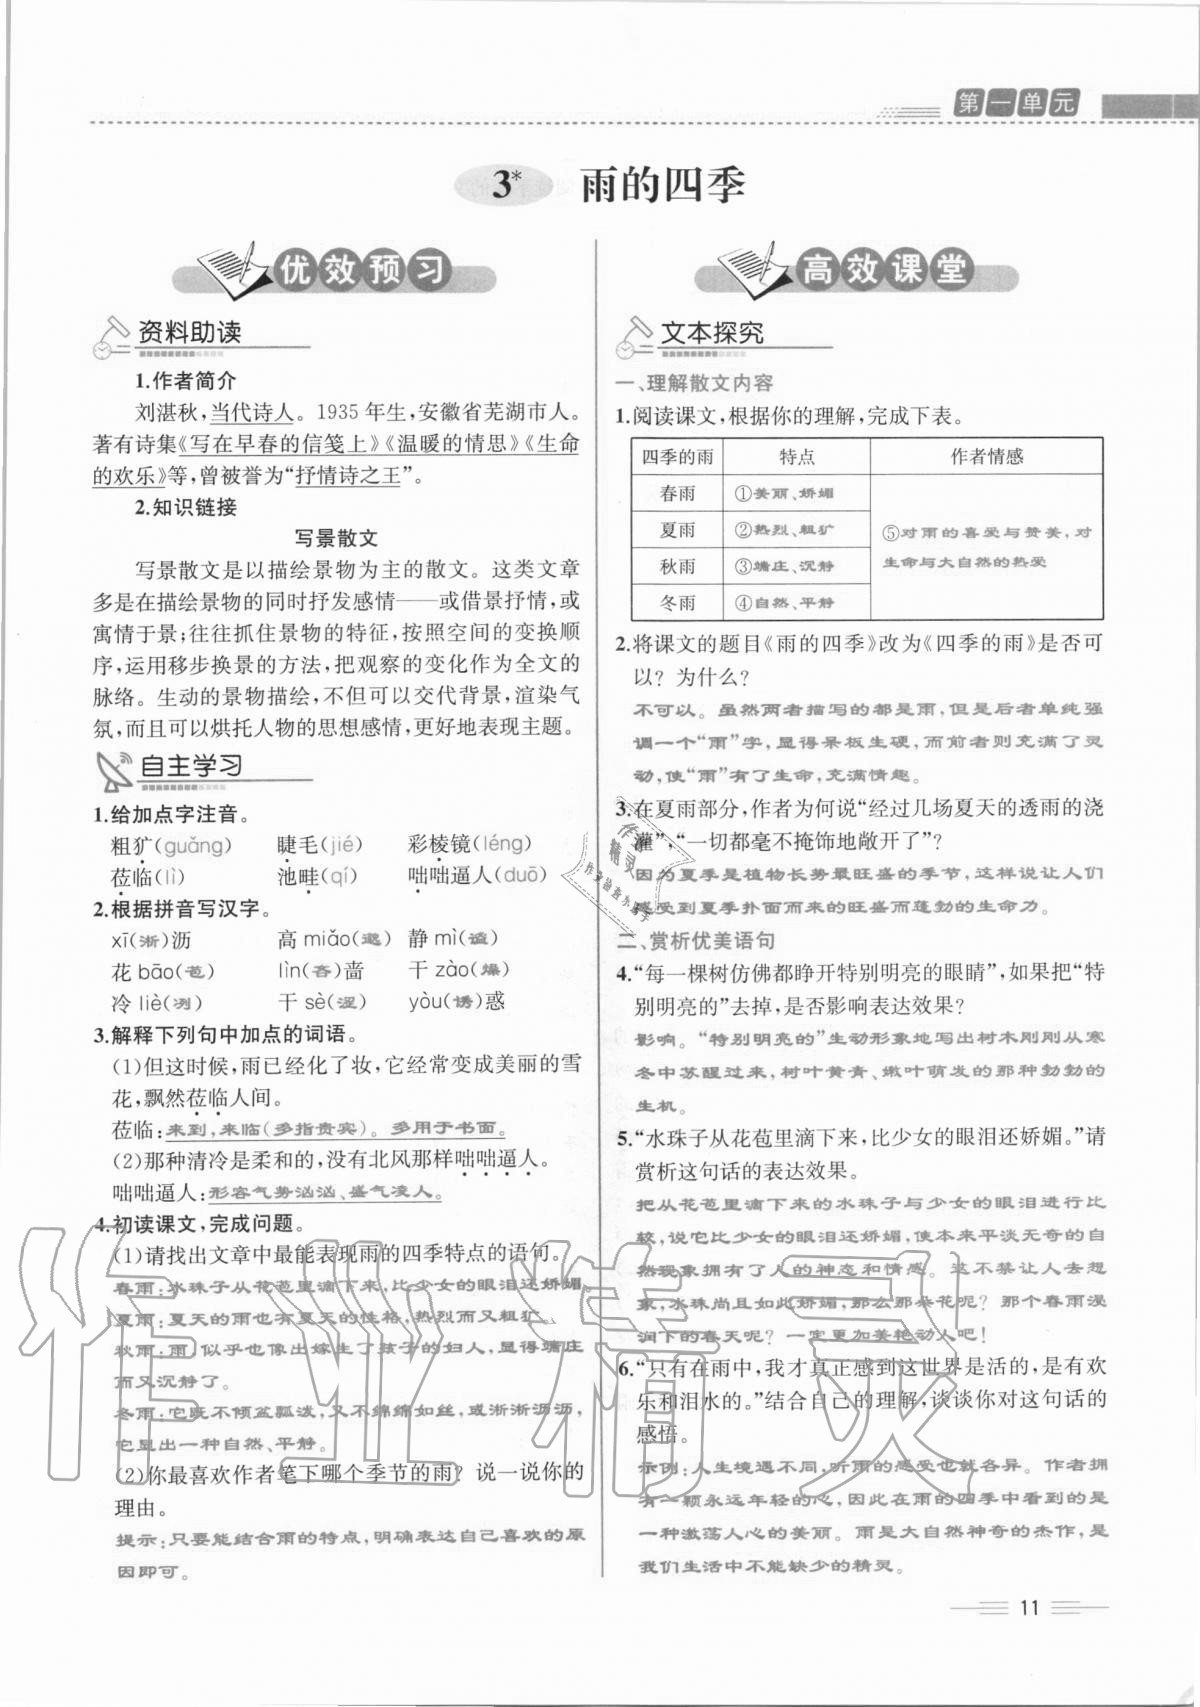 第一单元
3* 雨的四季
优效预习
资料助读
1.作者简介
刘湛秋,当代诗人。1935年生,安徽省芜湖市人。
著有诗集《写在早春的信笺上》《温暖的情思》《生命
的欢乐》等,曾被誉为“抒情诗之王”。
2.知识链接
写景散文
写景散文是以描绘景物为主的散文。这类文章
多是在描绘景物的同时抒发感情——或借景抒情,或
寓情于景;往往抓住景物的特征,按照空间的变换顺
序,运用移步换景的方法,把观察的变化作为全文的
脉络。生动的景物描绘,不但可以交代背景,渲染气
氛,而且可以烘托人物的思想感情,更好地表现主题。
自主学习
1.给加点字注音。
粗犷(guǎng) 睫毛(jié) 彩棱镜(léng)
莅临(lì) 池畦(qí) 咄咄逼人(duō)
2.根据拼音写汉字。
xī(淅)沥 高miǎo(邈) 静mì(谧)
花bāo(苞) lìn(吝)啬 干zào(燥)
冷liè(冽) 干sè(涩) yòu(诱)惑
3.解释下列句中加点的词语。
(1)但这时候,雨已经化了妆,它经常变成美丽的雪
花,飘然莅临人间。
莅临:来到,来临(多指贵宾)。多用于书面。
(2)那种清冷是柔和的,没有北风那样咄咄逼人。
咄咄逼人:形容气势汹汹、盛气凌人。
4.初读课文,完成问题。
(1)请找出文章中最能表现雨的四季特点的语句。
春雨:水珠子从花苞里滴下来,比少女的眼泪还娇媚
夏雨:夏天的雨也有夏天的性格,热烈而又粗犷
秋雨:雨,似乎也像出嫁生了孩子的妇人,显得端庄
而又沉静了。
冬雨:它既不倾盆瓢泼,又不绵绵如丝,或淅淅沥沥,
它显出一种自然、平静。
(2)你最喜欢作者笔下哪个季节的雨?说一说你的
理由。
提示:只要能结合雨的特点,明确表达自己喜欢的原
因即可。
高效课堂
文本探究
一、理解散文内容
1.阅读课文,根据你的理解,完成下表。
四季的雨 特点 作者情感
春雨 ①美丽、娇媚
夏雨 ②热烈、粗犷
⑤对雨的喜爱与赞美,对
生命与大自然的热爱
秋雨 ③端庄、沉静
冬雨 ④自然、平静
2.将课文的题目《雨的四季》改为《四季的雨》是否可
以?为什么?
不可以。虽然两者描写的都是雨,但是后者单纯强
调一个“雨”字,显得呆板生硬,而前者则充满了灵
动,使“雨”有了生命,充满情趣。
3.在夏雨部分,作者为何说“经过几场夏天的透雨的浇
灌”,“一切都毫不掩饰地敞开了”?
因为夏季是植物长势最旺盛的季节,这样说让人们
感受到夏季扑面而来的旺盛而蓬勃的生命力。
二、赏析优美语句
4.“每一棵树仿佛都睁开特别明亮的眼睛”,如果把“特
别明亮的”去掉,是否影响表达效果?
影响。“特别明亮的”生动形象地写出树木刚刚从寒
冬中苏醒过来,树叶黄青、嫩叶萌发的那种勃勃的
生机。
5.“水珠子从花苞里滴下来,比少女的眼泪还娇媚。”请
赏析这句话的表达效果。
把从花苞里滴下来的水珠子与少女的眼泪进行比
较,说它比少女的眼泪还娇媚,使本来平淡无奇的自
然现象拥有了人的神态和情感。这不禁让人去想
象,水珠尚且如此娇媚,那么那朵花呢?那个春雨浸
润下的春天呢?一定更加美艳动人吧!
6.“只有在雨中,我才真正感到这世界是活的,是有欢
乐和泪水的。”结合自己的理解,谈谈你对这句话的
感悟。
示例:人生境遇不同,听雨的感受也就各异。作者拥
有一颗永远年轻的心,因此在雨的四季中看到的是
一种激荡人心的美丽。雨是大自然神奇的杰作,是
我们生活中不能缺少的精灵。
作业精灵
11